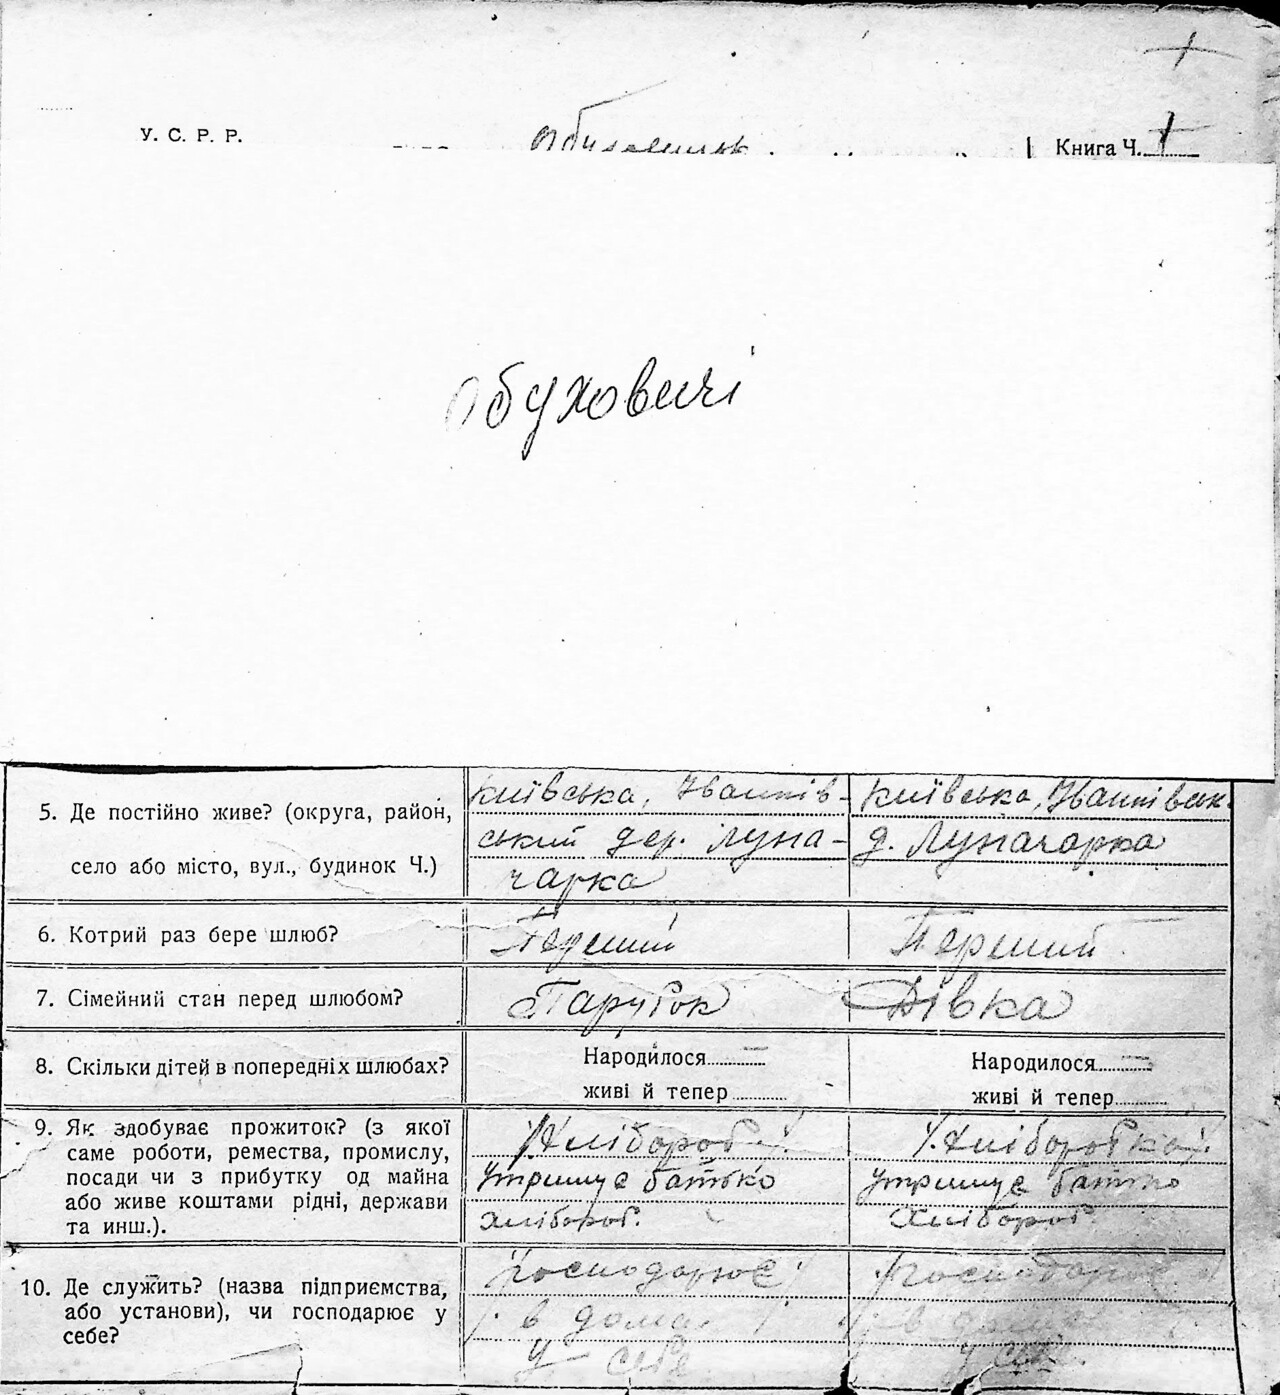 У. С. Р. Р.
Книга Ч. 1
Обуховичі
5. Де постійно живе? (округа, район,
село або місто, вул., будинок Ч.)
київська, Іванків-
ський дер. Луна-
чарка
київська, Іванківськ.
д. Луначарка
6. Котрий раз бере шлюб?
Перший
Перший
7. Сімейний стан перед шлюбом?
Парубок
Дівка
8. Скільки дітей в попередніх шлюбах?
Народилося
живі й тепер
Народилося
живі й тепер
9. Як здобуває прожиток? (з якої
саме роботи, ремества, промислу,
посади чи з прибутку од майна
або живе коштами рідні, держави
та инш.).
/Хлібороб/.
Утримує батько
хлібороб.
/.Хліборобка/.
Утримує батько
хлібороб.
10. Де служить? (назва підприємства,
або установи), чи господарює у
себе?
Господарює
в дома
у себе
Господарює
в дома
у себе